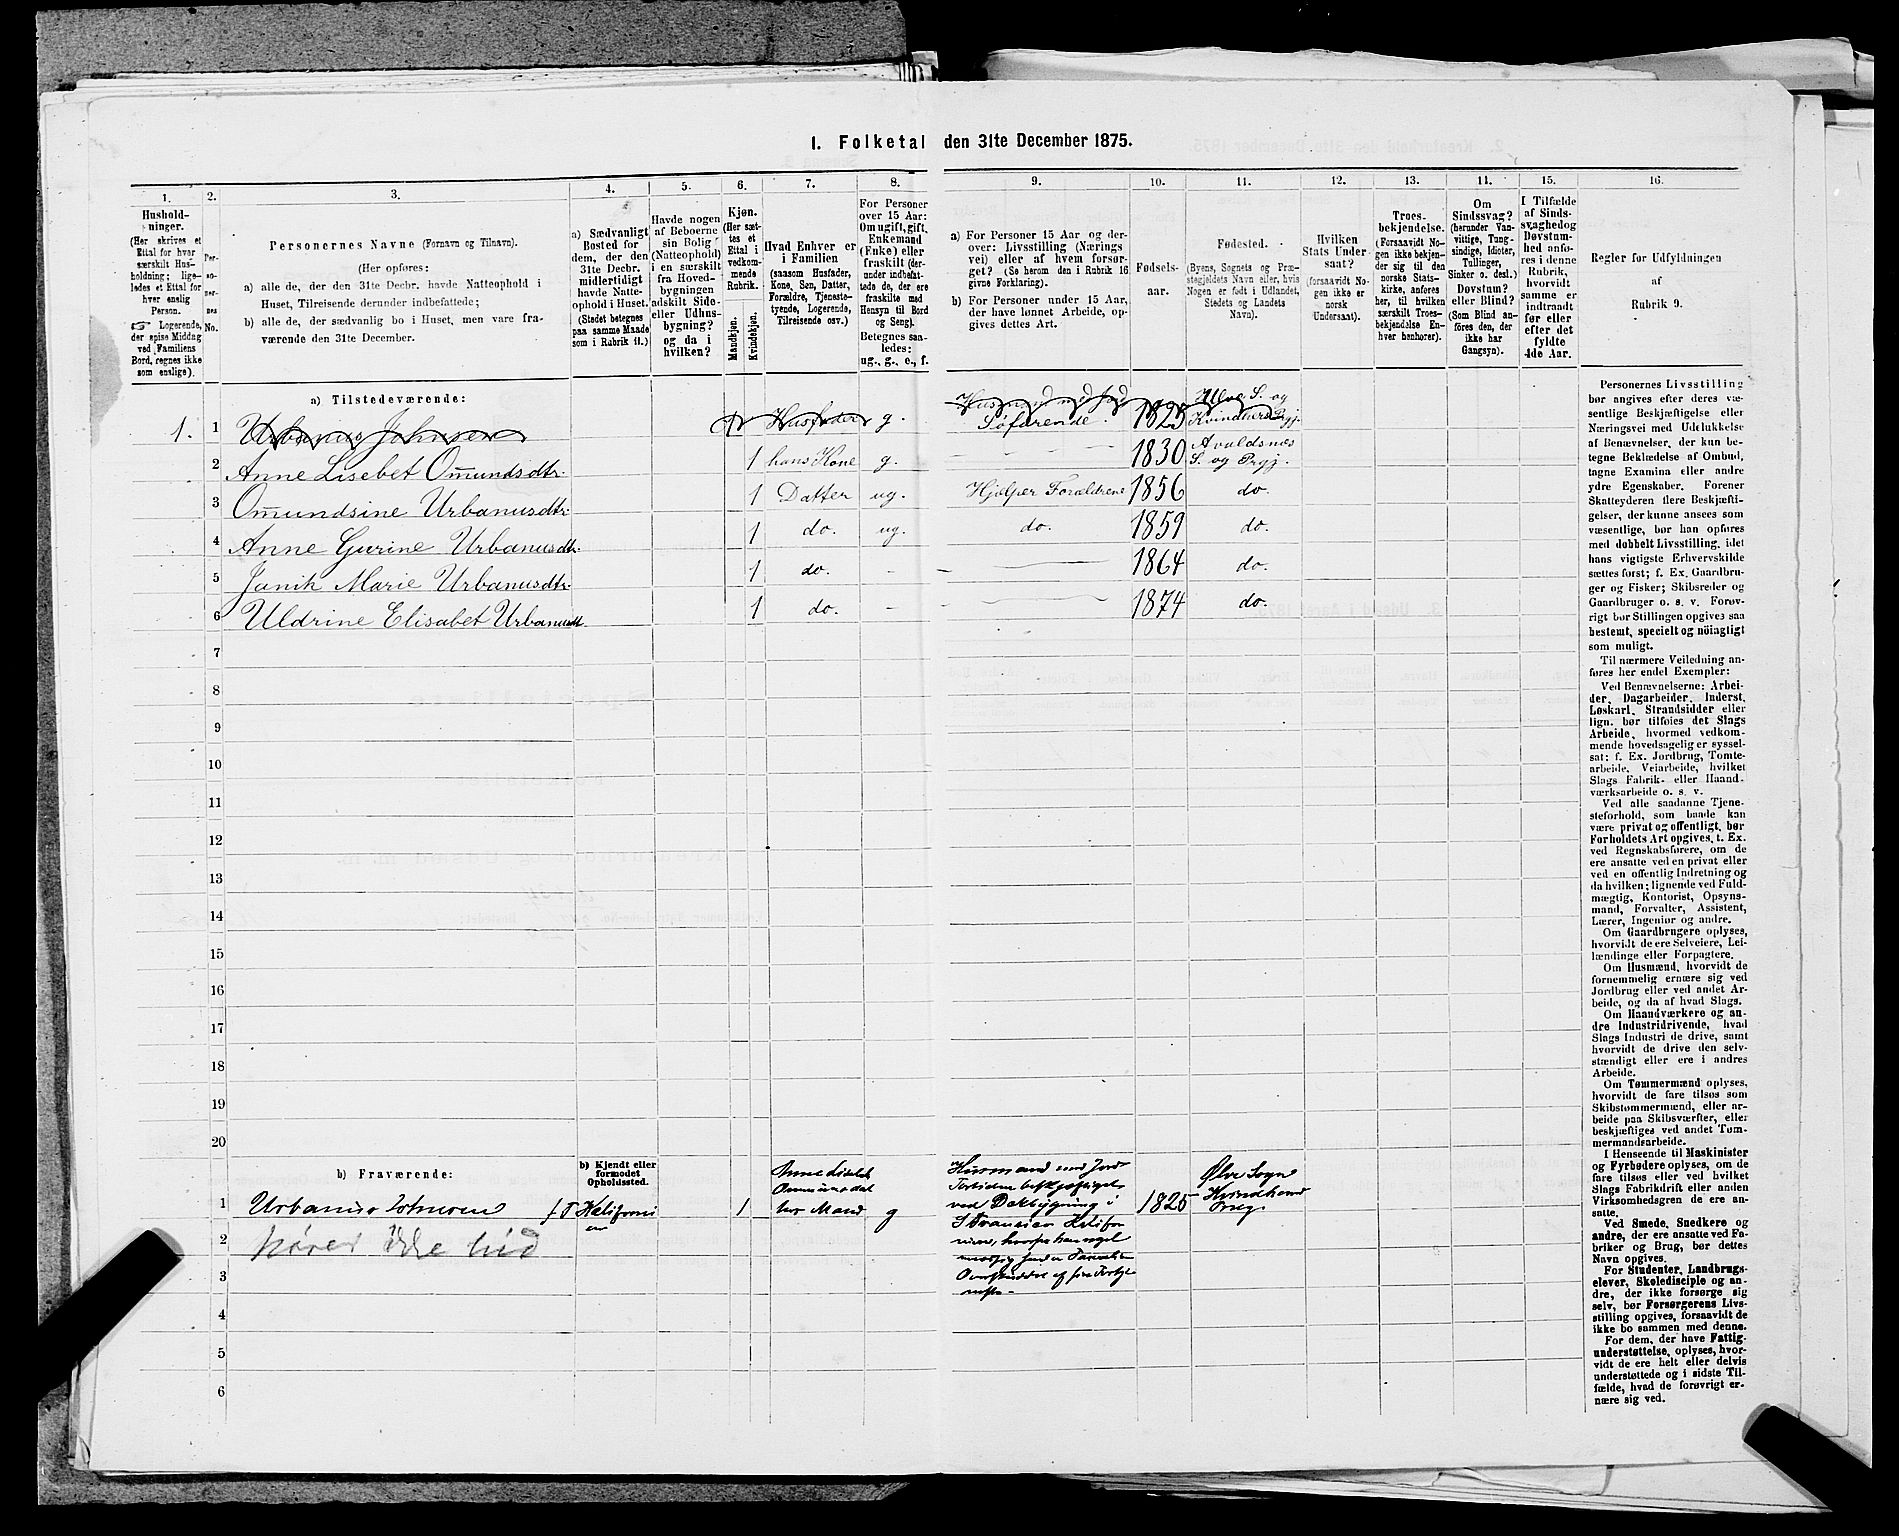 1. Folketal den 31te December 1875.
1.
2.
3.
4.
5.
6.
7.
8.
9.
10.
11.
12.
13.
14.
15.
16.
Hushold-
ninger.
(Her skrives et
Ettal for hver
særskilt Hus-
holdning; lige-
ledes et Ettal for
hver enslig
Person.
Logerende,
der spise Middag
ved Familiens
Bord, regnes ikke
som enslige).
Per-
so-
ner-
nes
No.
Personernes Navne (Fornavn og Tilnavn).
(Her opføres:
a) alle de, der den 31te Decbr. havde Natteophold i
Huset, Tilreisende derunder indbefattede;
b) alle de, der sædvanlig bo i Huset, men vare fra-
værende den 31te December.
a) Sædvanligt
Bosted for
dem, der den
31te Decbr.
midlertidigt
havde Natte-
ophold i Huset.
(Stedet betegnes
paa samme Maade
som i Rubrik 11.)
Havde nogen
af Beboerne
sin Bolig
(Natteophold)
i en særskilt
fra Hoved-
bygningen
adskilt Side-
eller Udhus-
bygning?
og da i
hvilken?
Kjøn.
(Her sæt-
tes et
Ettal i
vedkom-
mende
Rubrik.
Mandkjøn.
Kvindekjøn.
Hvad Enhver er
i Familien
(saasom Husfader,
Kone, Søn, Datter,
Forældre, Tjeneste-
tyende, Logerende,
Tilreisende osv.)
For Personer
over 15 Aar:
Om ugift, gift,
Enkemand
(Enke) eller
fraskilt (der-
under indbefat-
tede de, der ere
fraskilte med
Hensyn til Bord
og Seng).
Betegnes saa-
ledes:
ug., g., e., f.
a) For Personer 15 Aar og der-
over: Livsstilling (Nærings
vei) eller af hvem forsør-
get? (Se herom den i Rubrik 16
givne Forklaring).
b) For Personer under 15 Aar,
der have lønnet Arbeide, op-
gives dettes Art.
Fødsels-
aar.
Fødested.
(Byens, Sognets og Præ-
stegjeldets Navn eller, hvis
Nogen er født i Udlandet,
Stedets og Landets
Navn).
Hvilken
Stats Under-
saat?
(forsaavidt No-
gen ikke er
norsk
Undersaat).
Troes-
bekjendelse.
(Forsaavidt No-
gen ikke bekjen-
der sig til den
norske Stats-
kirke, anføres
her, til hvilken
særskilt Troes-
bekjendelse En-
hver henhører).
Om
Sindssvag?
(herunder Van-
vittige, Tung-
sindige, Idioter,
Tullinger,
Sinker o. desl.)
Døvstum?
eller Blind?
(Som Blind an-
føres den, der
ikke har
Gangsyn).
I Tilfælde
af Sinds-
svaghed og
Døvstum-
hed anfø-
res i denne
Rubrik,
hvorvidt
samme er
indtraadt
før eller
efter det
fyldte
4de Aar.
Regler for Udfyldningen
af
Rubrik 9.
a) Tilstedeværende:
1. 1 Urbanus Johnsen 1 Husfader g. Søfarende. 1825
2 Anne Lisebet Omundsdtr. 1 hans Kone g. 1830 Avaldsnes S. og Prgj.
3 Omundsine Urbanusdtr. 1 Datter ug. Hjelper Forældrene 1856 do.
4 Anne Gurine Urbanusdtr. 1 do. ug. do. 1859 do.
5 Janik Marie Urbanusdtr. 1 do. - 1864 do.
6 Uldrine Elisabet Urbanusdt. 1 do. - 1874 do.
7
8
9
10
11
12
13
14
15
16
17
18
19
20
b) Fraværende:
b) Kjendt eller
formodet
Opholdssted.
1 Urbanus Johnsen 1 g 1825
Anne Lisebet
Husmand med Jord
ved Dokbygning i
Ølve Sogn
2
3
4
5
6
Personernes Livsstilling
bør angives efter deres væ-
sentlige Beskjæftigelse eller
Næringsvei med Udelukkelse
af Benævnelser, der kun be-
tegne Beklædelse af Ombud,
tagne Examina eller andre
ydre Egenskaber. Forener
Skatteyderen flere Beskjæfti-
gelser, der kunne ansees som
væsentlige, bør han opføres
med dobbelt Livsstilling, idet
hans vigtigste Erhvervskilde
sættes først; f. Ex. Gaardbru-
ger og Fisker; Skibsreder og
Gaardbruger o. s. v. Forøv-
rigt bør Stillingen opgives saa
bestemt, specielt og nøiagtigt
som muligt.
Til nærmere Veiledning an-
føres her endel Exempler:
Ved Benævnelserne: Arbei-
der, Dagarbeider, Inderst,
Løskarl, Strandsidder eller
lign. bør tilføies det Slags
Arbeide, hvormed vedkom-
mende hovedsagelig er syssel-
sat: f. Ex. Jordbrug, Tomte-
arbeide, Veiarbeide, hvilket
Slags Fabrik- eller Haand-
værksarbeide o. s. v.
Ved alle saadanne Tjene-
steforhold, som baade kan
være privat og offentligt, bør
Forholdets Art opgives, t. Ex.
ved Regnskabsførere, om de
ere ansatte ved en privat eller
ved en offentlig Indretning og
da hvilken; lignende ved Fuld-
mægtig, Kontorist, Opsyns-
mand, Forvalter, Assistent,
Lærer, Ingeniør og andre.
Om Gaardbrugere oplyses,
hvorvidt de ere Selveiere, Lei-
lændinge eller Forpagtere.
Om Husmænd, hvorvidt de
fornemmelig ernære sig ved
Jordbrug eller ved andet Ar-
beide, og da af hvad Slags.
Om Haandværkere og an-
dre Industridrivende, hvad
Slags Industri de drive, samt
hvorvidt de drive den selv-
stændigt eller ere i andres
Arbeide.
Om Tømmermænd oplyses,
hvorvidt de fare tilsøs som
Skibstømmermænd, eller ar-
beide paa Skibsværfter, eller
beskjæftiges ved andet Tøm-
mermandsarbeide.
I Henseende til Maskinister
og Fyrbødere oplyses, om de
fare tilsøs eller ved hvilket
Slags Fabrikdrift eller anden
Virksomhedsgren de ere an-
satte.
Ved Smede, Snedkere og
andre, der ere ansatte ved Fa-
briker og Brug, bør dettes
Navn opgives.
For Studenter, Landbrugs-
elever, Skoledisciple og an-
dre, der ikke forsørge sig
selv, bør Forsørgerens Livs-
stilling opgives, forsaavidt de
ikke bo sammen med denne.
For dem, der have Fattig-
understøttelse, oplyses, hvor-
vidt de ere helt eller delvis
understøttede og i sidste Til-
fælde, hvad de forøvrigt er-
nære sig ved.